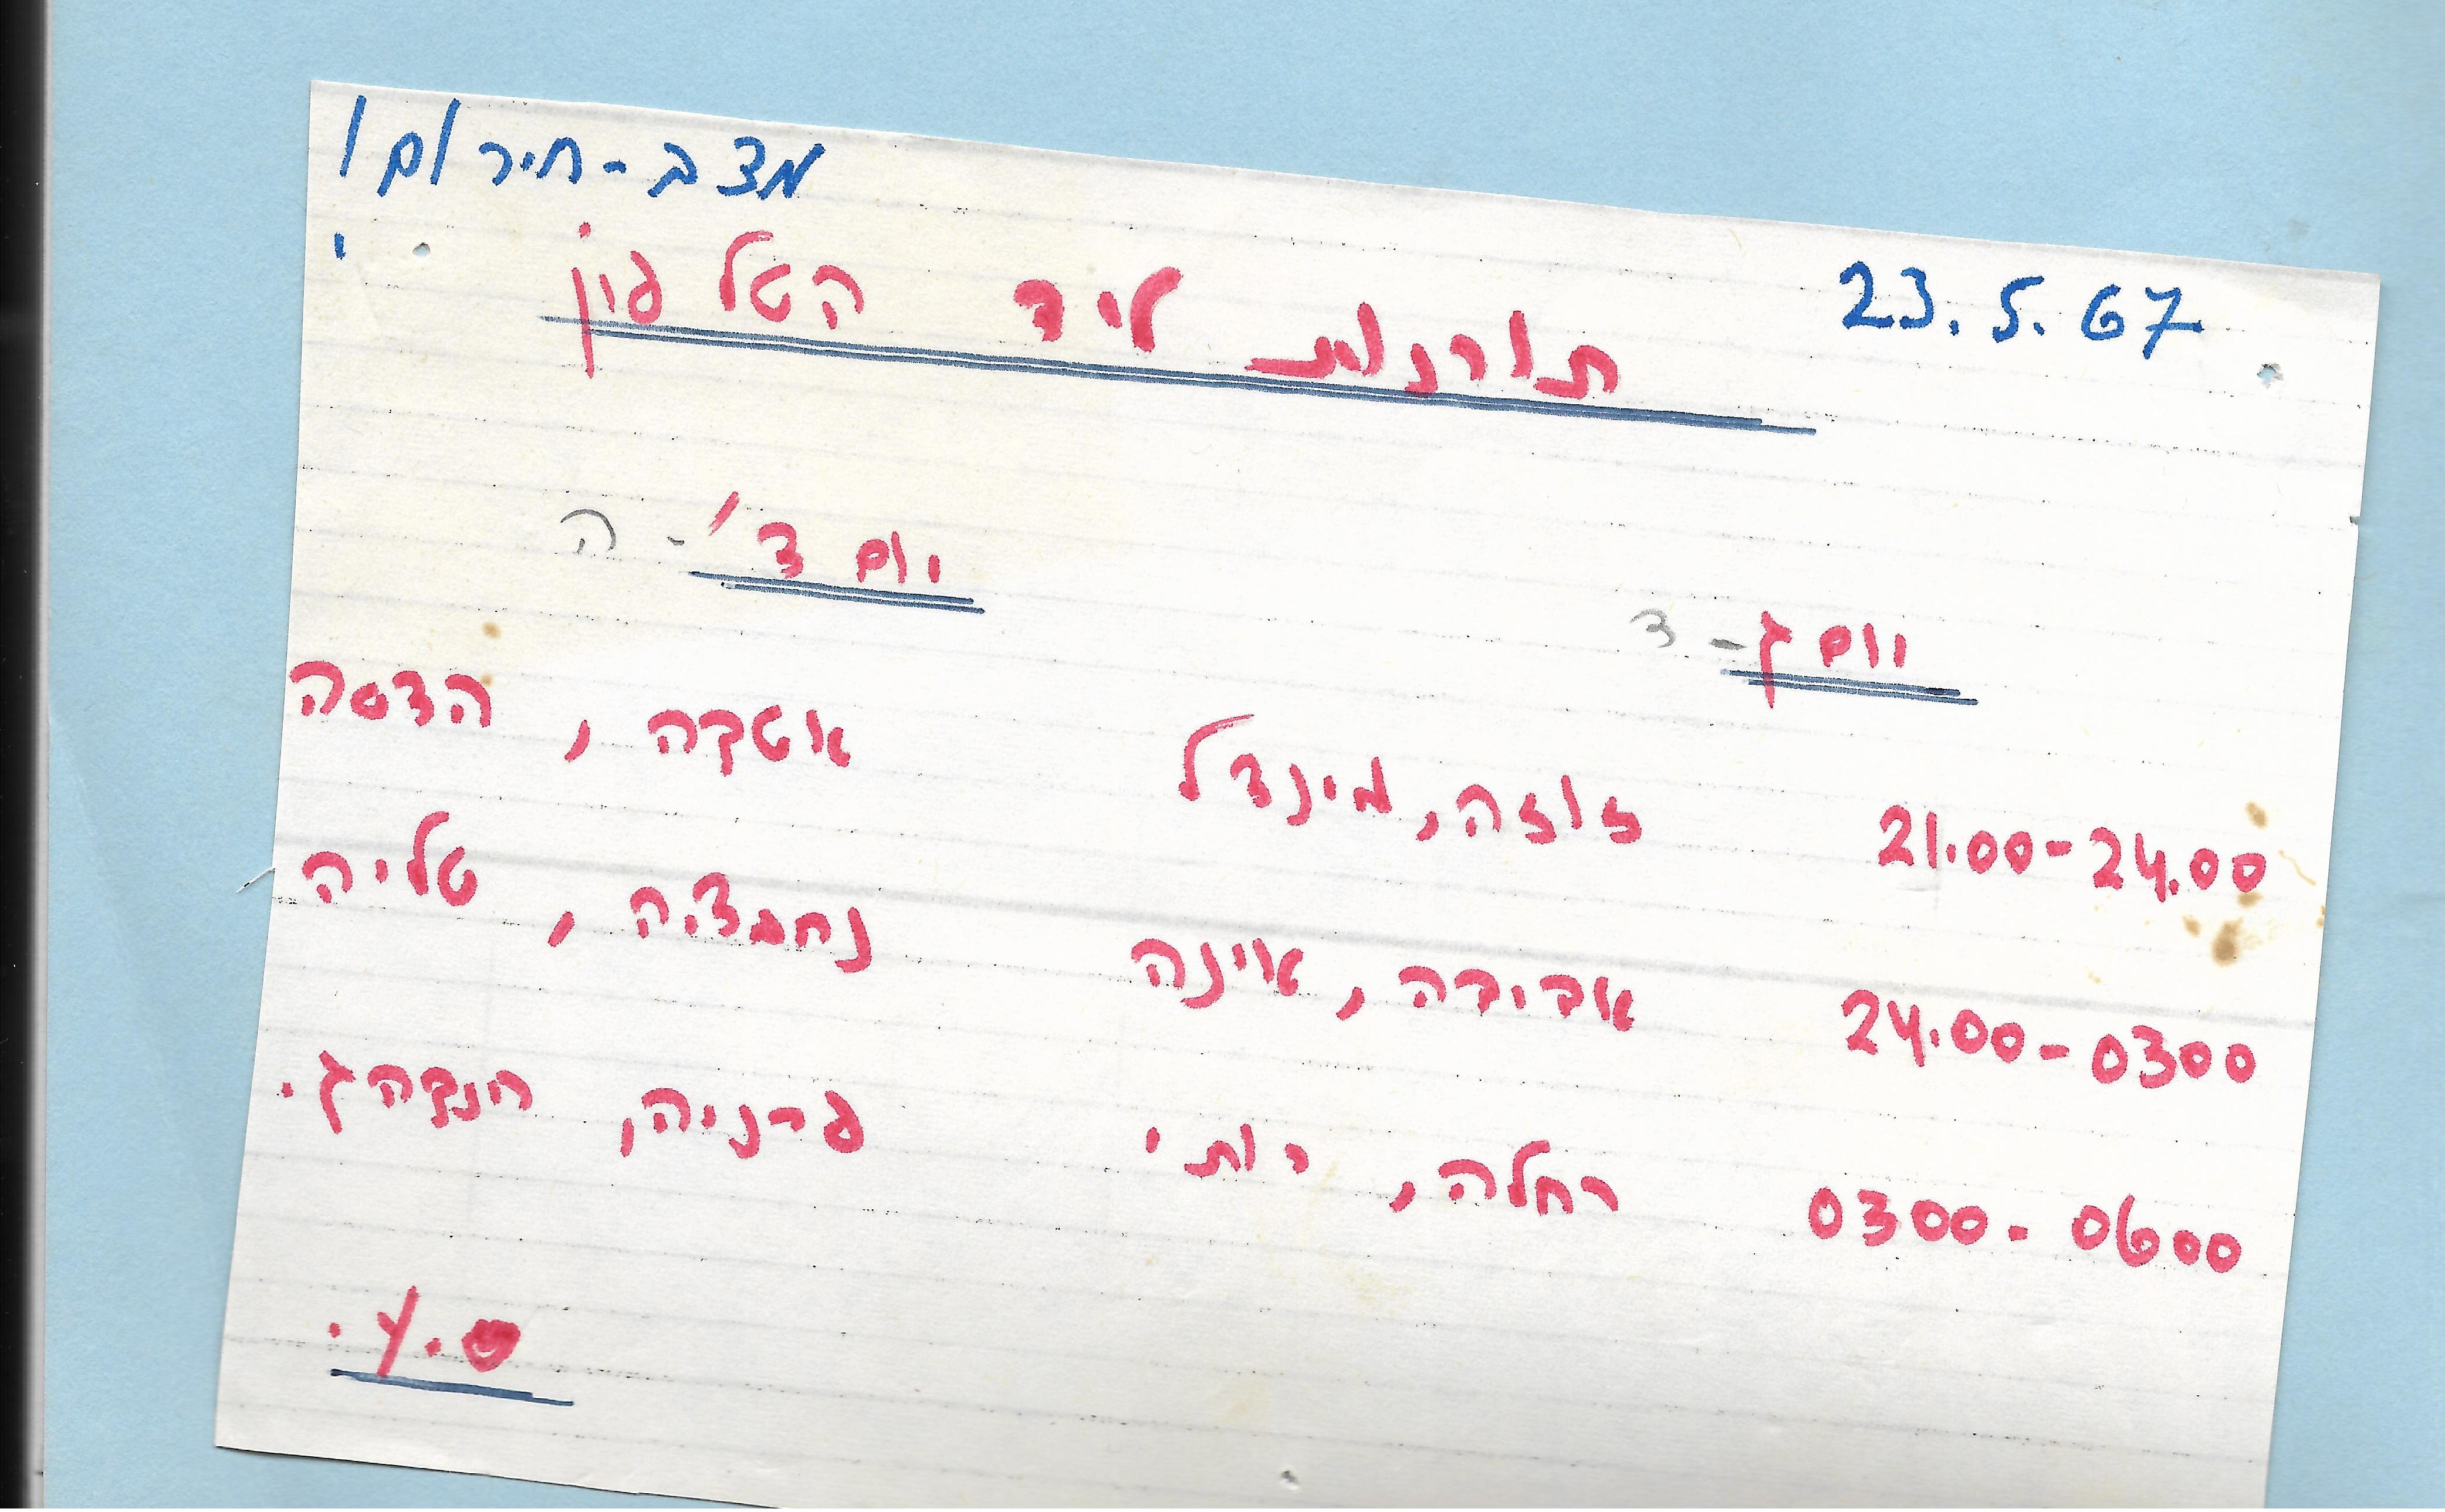 מצב-חירום!
23.5.67
תורנות ליד הטלפון
יום ג-ד
יום ד'-ה
21.00-24.00 זוזה, מינדל אטקה, הדסה
24.00-0300 אבידה, אינה נחמצ'ה, טליה
0300-0600 רחלה, רותי פרניה, חנקה ג.
ס.ע.